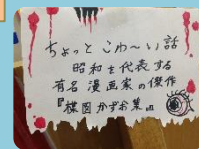 ちょっとこわ〜い話
昭和を代表する
有名漫画家の傑作
『楳図かずお集』